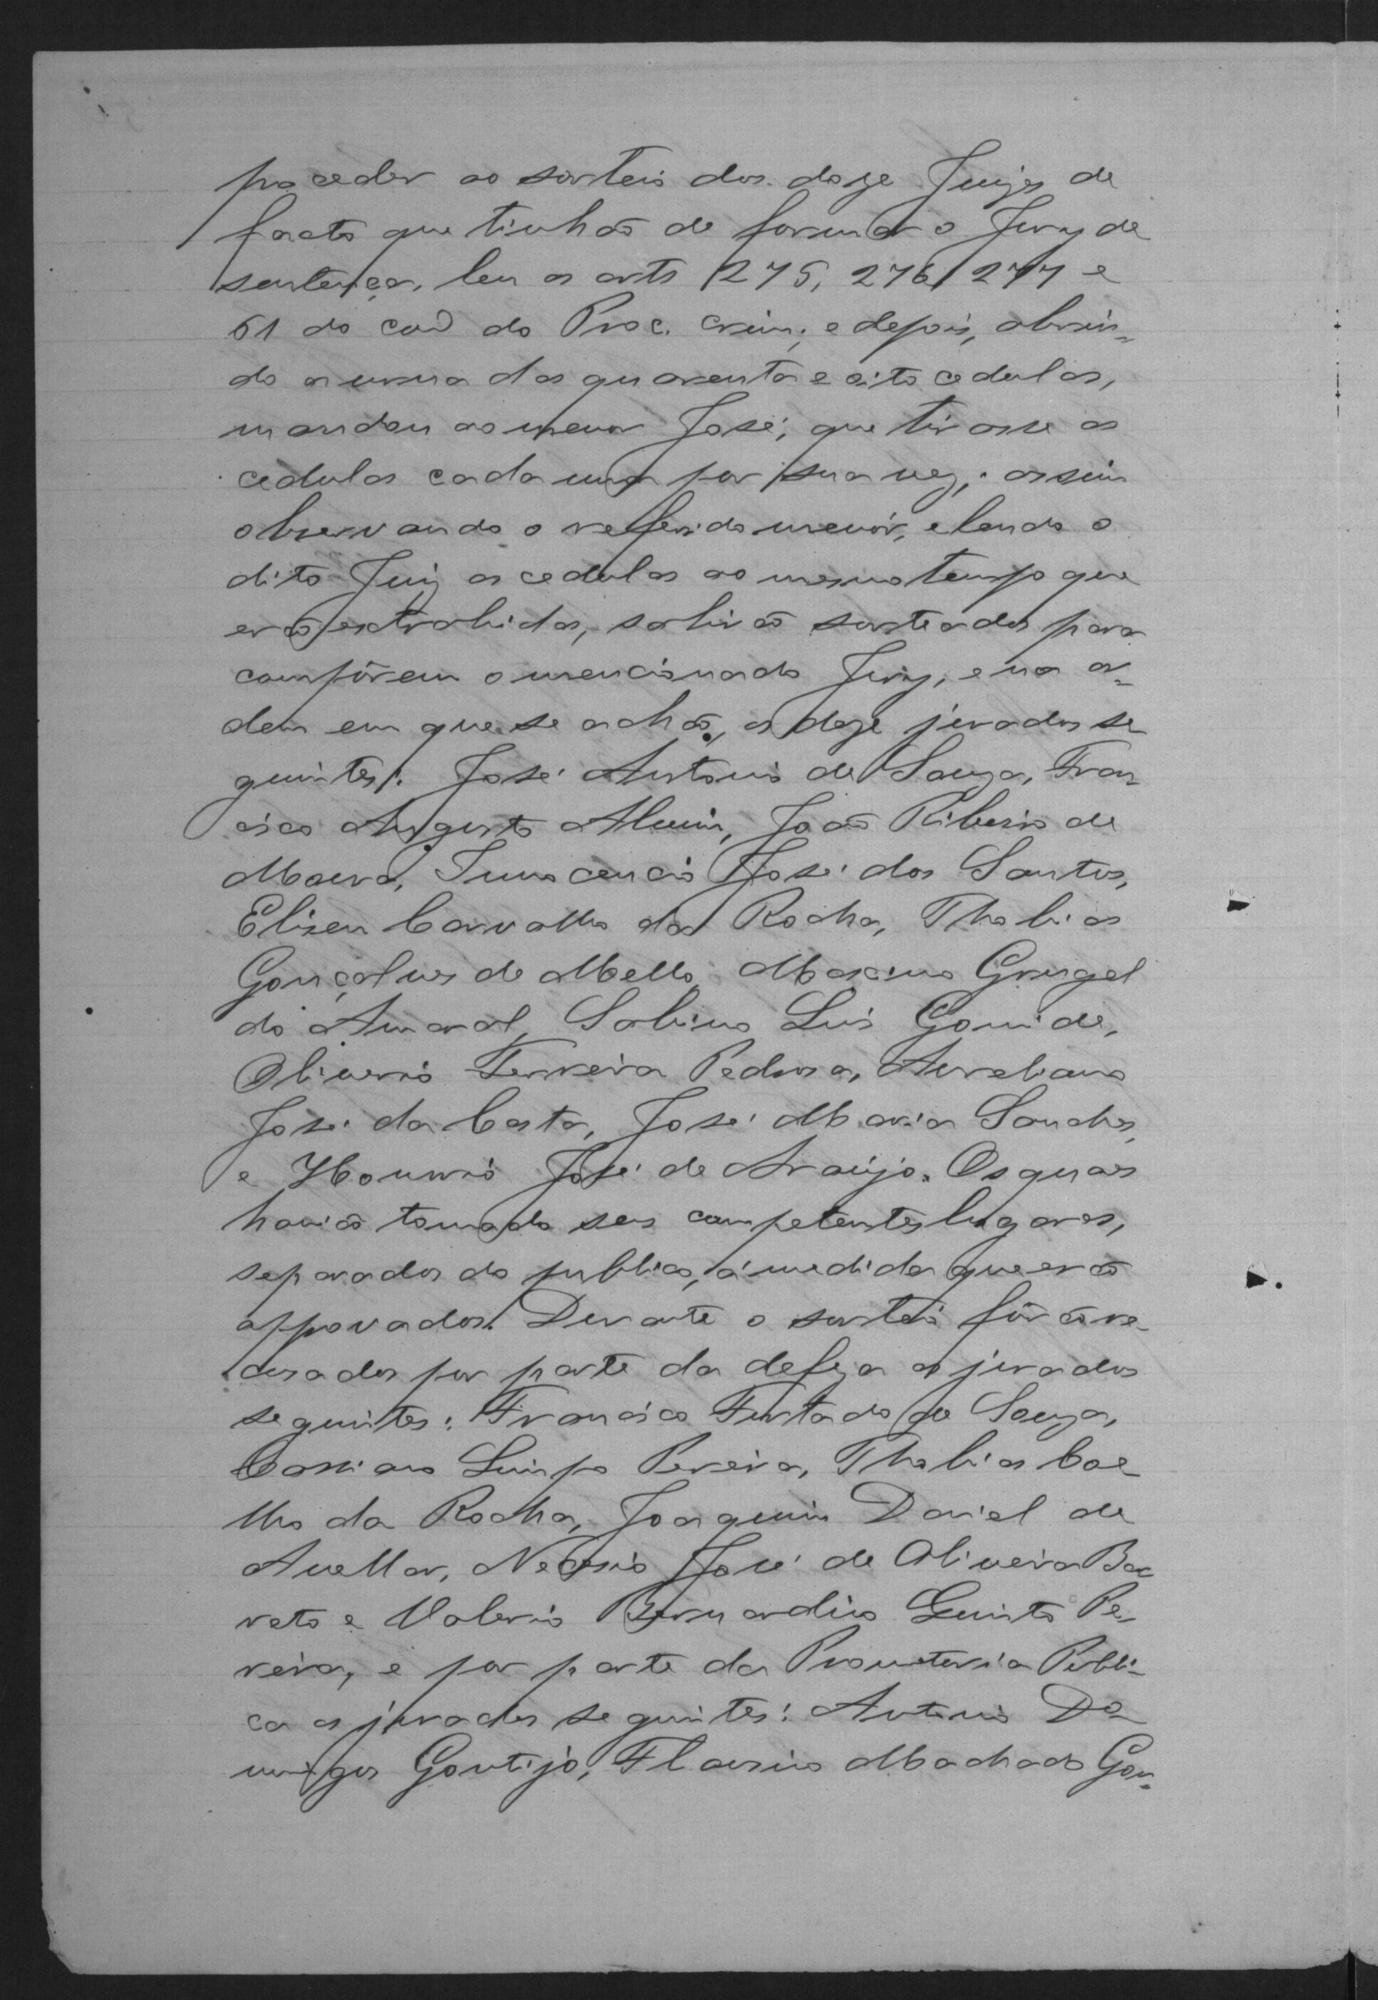 proceder ao sorteio dos doze Juizes de
facto que tinhão de formar o Jury de
sentença, leu os arts 275, 276, 277 e
61 do cod do Proc. crim; e depois, abrin-
do a urna das quarenta e oito cedulas,
mandou ao menor José, que tirasse as
cedulas cada uma por sua vez; assim
observando o referido menór, e lendo o
dito Juiz as cedulas ao mesmo tempo que
erão extrahidas, sahirão sorteados para
compôrem o mencionado Jury, e na or-
dem em que se achão, os doze jurados se
guintes: José Antonio de Souza, Fran-
cisco Augusto Alvim, João Ribeiro de
Moura, Innocencio José dos Santos,
Eliseu Carvalho da Rocha, Thobias
Gonçalves de Mello, Maximo Gurgel
do Amaral, Sabino Luis Gomide,
Oliverio Ferreira Pedrosa, Aureliano
José da Costa, José Maria Sanches,
e Honorio José de Araújo. Os quaes
havião tomado seus competentes lugares,
separados do publico, á medida que erão
approvados. Durante o sorteio fôrão re-
cusados por parte da defeza os jurados
seguintes: Francisco Furtado de Souza,
Cassiano Pereira, Thobias Coe
lho da Rocha, Joaquim Daniel de
Avellar, José de Oliveira Bar
reto e Valerio Bernardino Pe-
reira, e por parte da Promotoria Publi-
ca os jurados seguintes: Antonio Do-
mingos Gontijo, Machado Gon-